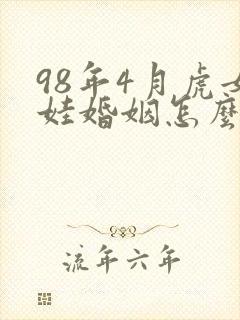 98年4月虎女
娃婚姻怎麽
流年六年